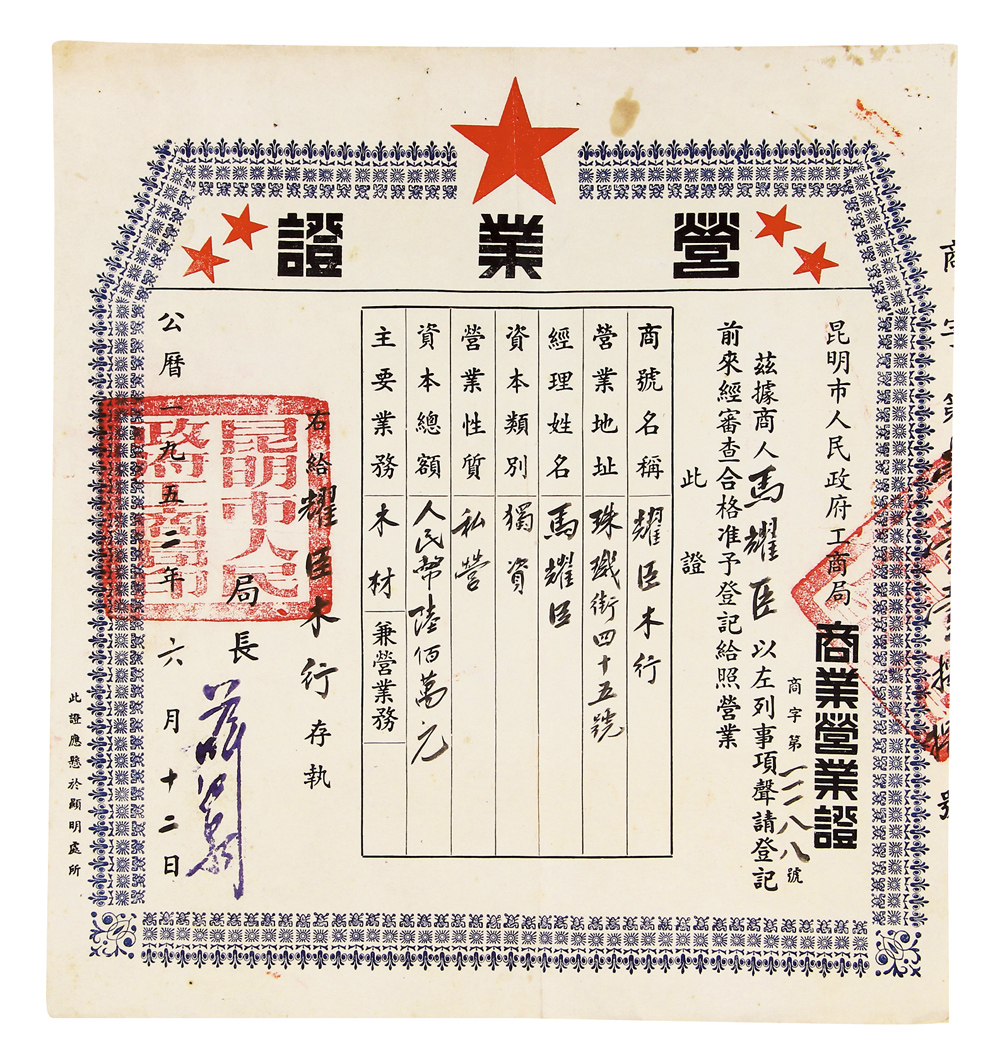 營業證
商字第
號
昆明市人民政府工商局 商業營業證
商字第一一八八號
茲據商人馬耀臣以左列事項聲請登記
前來經審查合格准予登記給照營業
此證
商號名稱 耀臣木行
營業地址 珠璣街四十五號
經理姓名 馬耀臣
資本類別 獨資
營業性質 私營
資本總額 人民幣陸佰萬元
主要業務 木材 兼營業務
右給耀臣木行存執
局長
昆明市人民政府工商局印
公曆一九五二年六月十二日
此證應懸於顯明處所